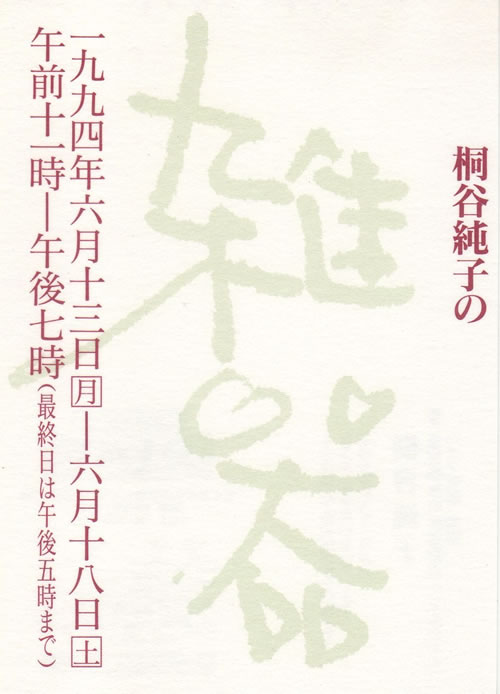 桐谷純子の
雑器
一九九四年六月十三日月—六月十八日土
午前十一時—午後七時(最終日は午後五時まで)